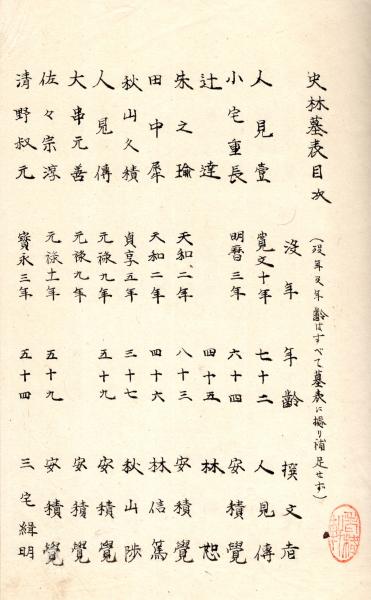 史林墓表目次
(没年及年齢はすべて墓表に據り補足せず)
没年 年齢 撰文者
人見壹 寛文十年 七十二 人見傳
小宅重長 明暦三年 六十四 安積覺
辻達 四十五 林恕
朱之瑜 天和二年 八十三 安積覺
田中犀 天和二年 四十六 林信篤
秋山久積 貞享五年 三十七 秋山陟
人見傳 元禄九年 五十九 安積覺
大串元善 元禄九年 安積覺
佐々宗淳 元禄十一年 五十九 安積覺
清野叔元 寳永三年 五十四 三宅緝明